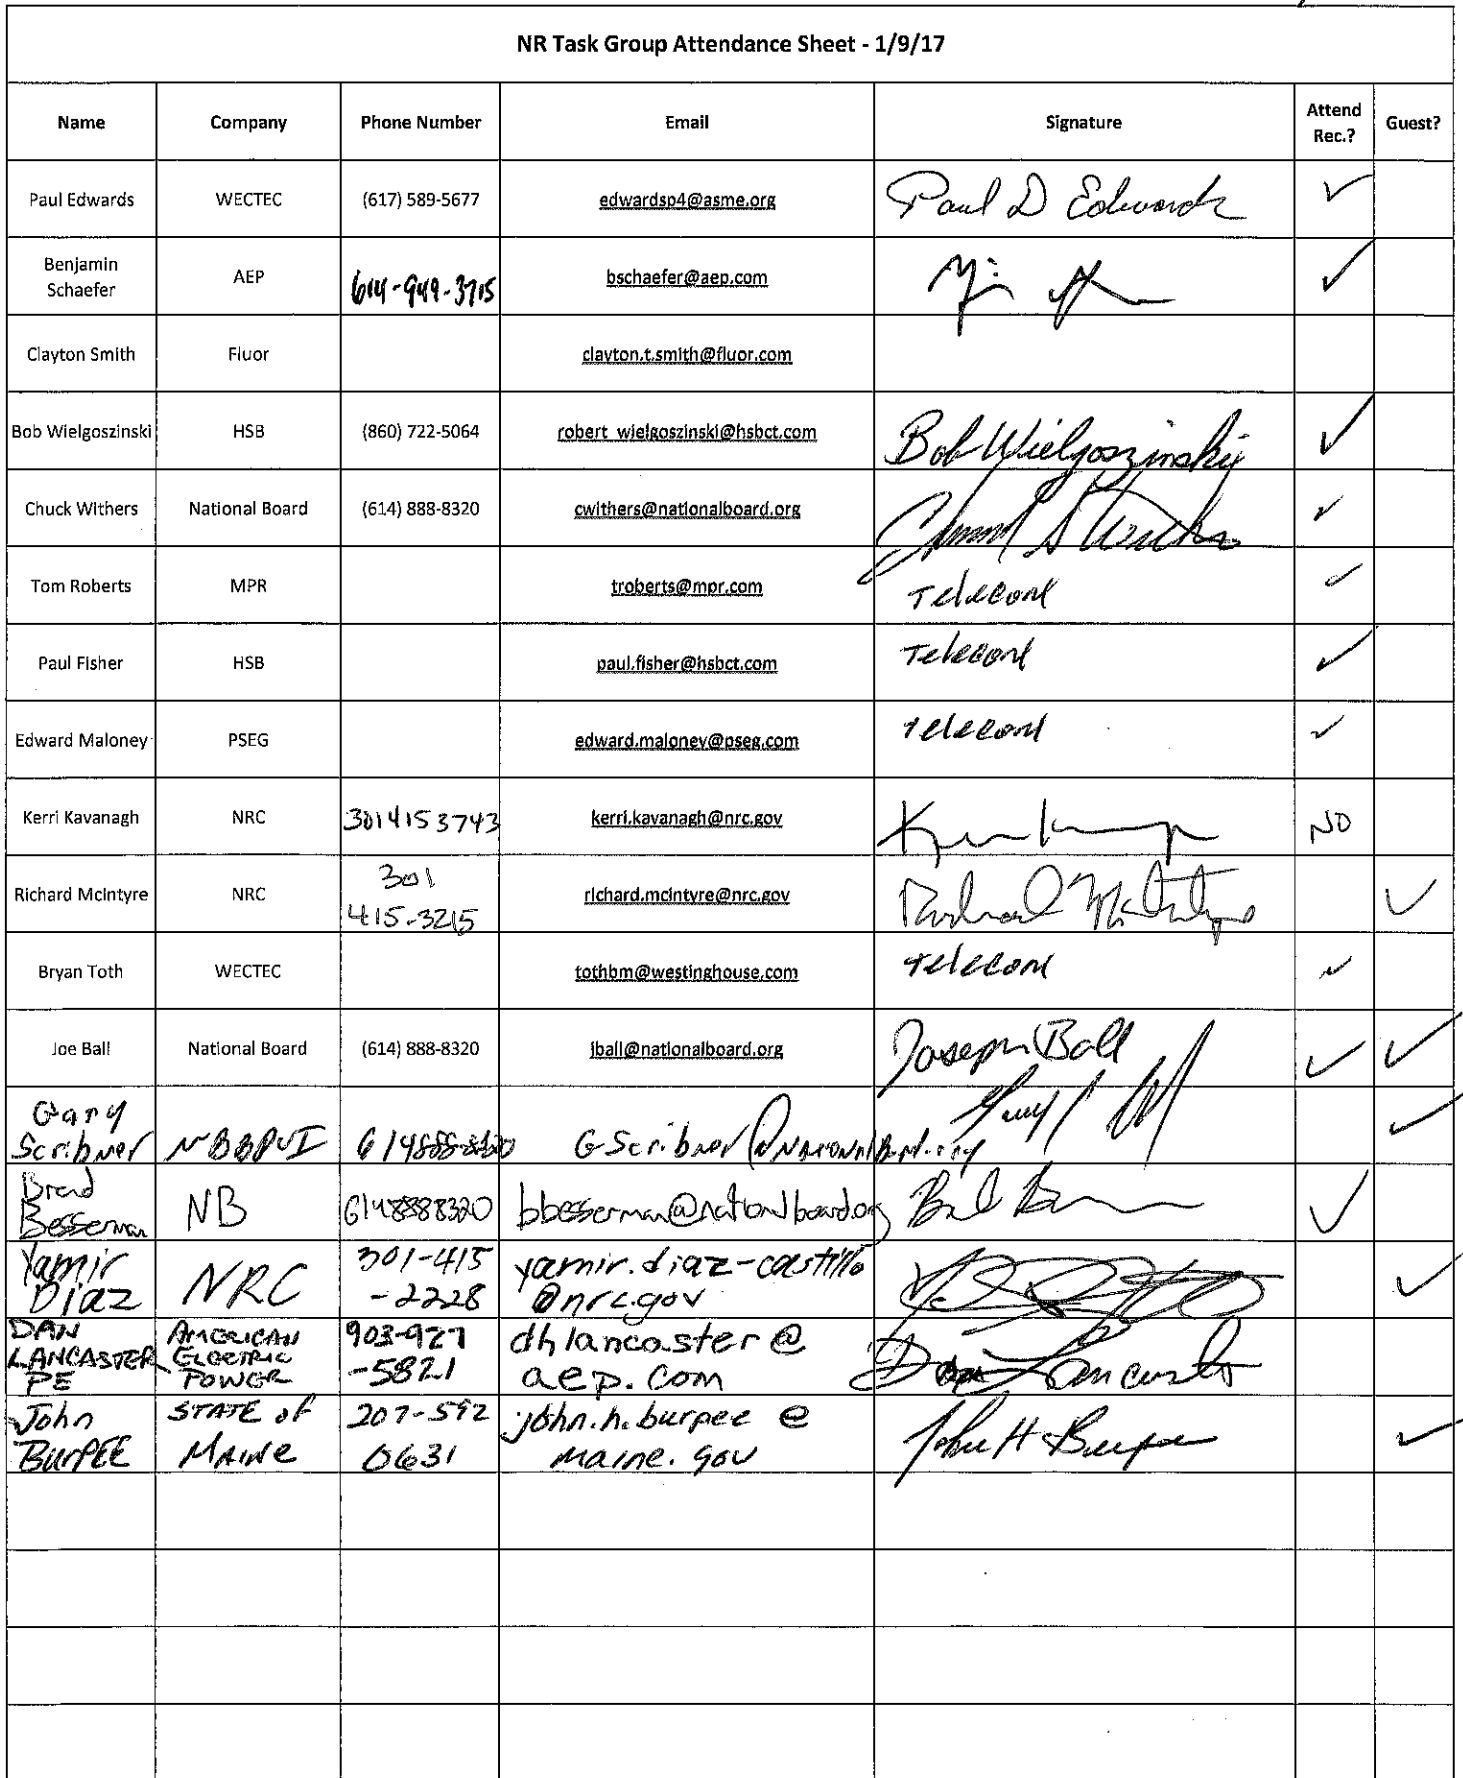 NR Task Group Attendance Sheet - 1/9/17
Name Company Phone Number Email Signature Attend Rec.? Guest?
Paul Edwards WECTEC (617) 589-5677 edwardsp4@asme.org Paul D Edwards ✓
Benjamin Schaefer AEP 614-949-3715 bschaefer@aep.com ✓
Clayton Smith Fluor clayton.t.smith@fluor.com
Bob Wielgoszinski HSB (860) 722-5064 robert_wielgoszinski@hsbct.com Bob Wielgoszinski ✓
Chuck Withers National Board (614) 888-8320 cwithers@nationalboard.org ✓
Tom Roberts MPR troberts@mpr.com Telecon ✓
Paul Fisher HSB paul.fisher@hsbct.com Telecon ✓
Edward Maloney PSEG edward.maloney@pseg.com Telecon ✓
Kerri Kavanagh NRC 3014153743 kerri.kavanagh@nrc.gov NO
Richard McIntyre NRC 301 415-3215 richard.mcintyre@nrc.gov Richard McIntyre ✓
Bryan Toth WECTEC tothbm@westinghouse.com Telecon ✓
Joe Ball National Board (614) 888-8320 jball@nationalboard.org Joseph Ball ✓ ✓
Gary Scribner NBBPVI 6148888320 GScribner@NationalBoard.org ✓
Brad Besserman NB 6148888320 bbesserman@nationalboard.org ✓
Yamir Diaz NRC 301-415-2228 yamir.diaz-castillo@nrc.gov ✓
DAN LANCASTER PE AMERICAN ELECTRIC POWER 903-927-5821 dhlancaster@aep.com Dan Lancaster
John BURPEE STATE of MAINE 207-592 0631 john.h.burpee@maine.gov John H Burpee ✓